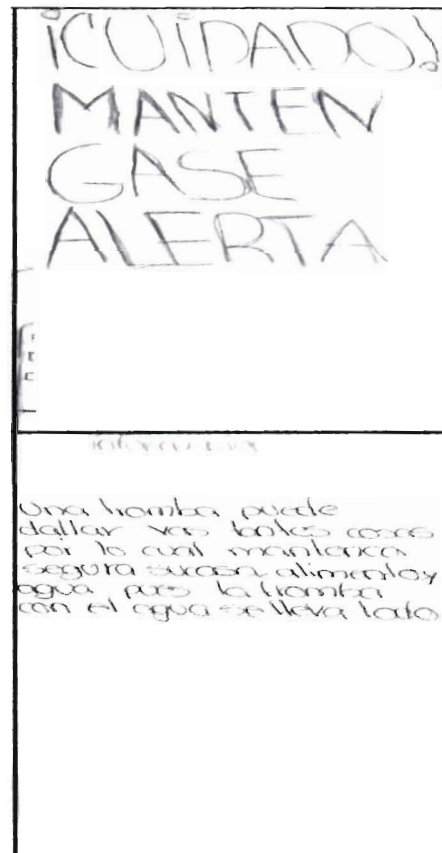 ¡CUiDADO!
MANTEN
GASE
ALERTA
una tromba puede
dallar vas tantes cosas
por lo cual mantenca
segura su casa, alimento y
agua pues la tromba
con el agua se lleva todo